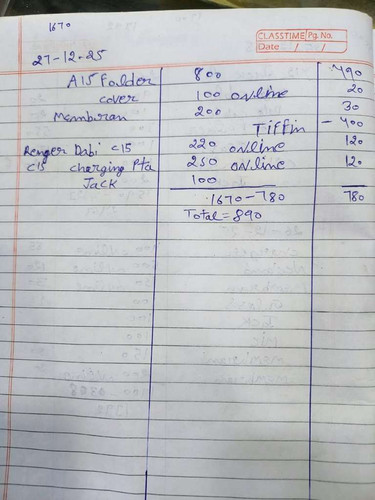 1670
CLASSTIME Pg. No.
Date / /
27-12-25
A15 Folder 800 490
cover 100 online 20
Membiran 200 30
Tiffin - 400
Renger Dabi C15 220 online 120
C15 charging Pta 250 online 120
Jack 100
1670-780 780
Total = 890